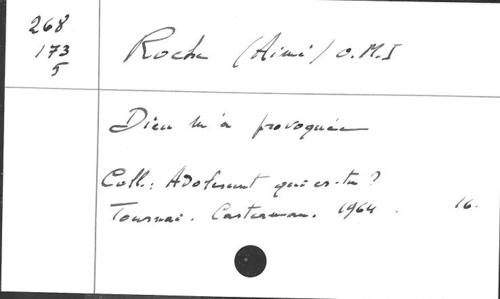 268
173
5
Roche (Aimé) O.M.I
Dieu m'a provoquée
Coll.: Adolescent qui es-tu?
Tournai. Casterman. 1964. 16.